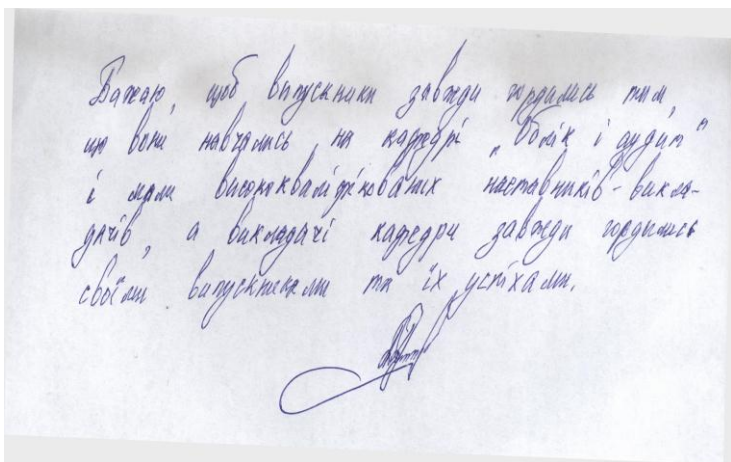 Бажаю, щоб випускники завжди гордились тим,
що вони навчались на кафедрі „Облік і аудит"
і мали висококваліфікованих наставників-викла-
дачів, а викладачі кафедри завжди гордились
своїми випускниками та їх успіхами.